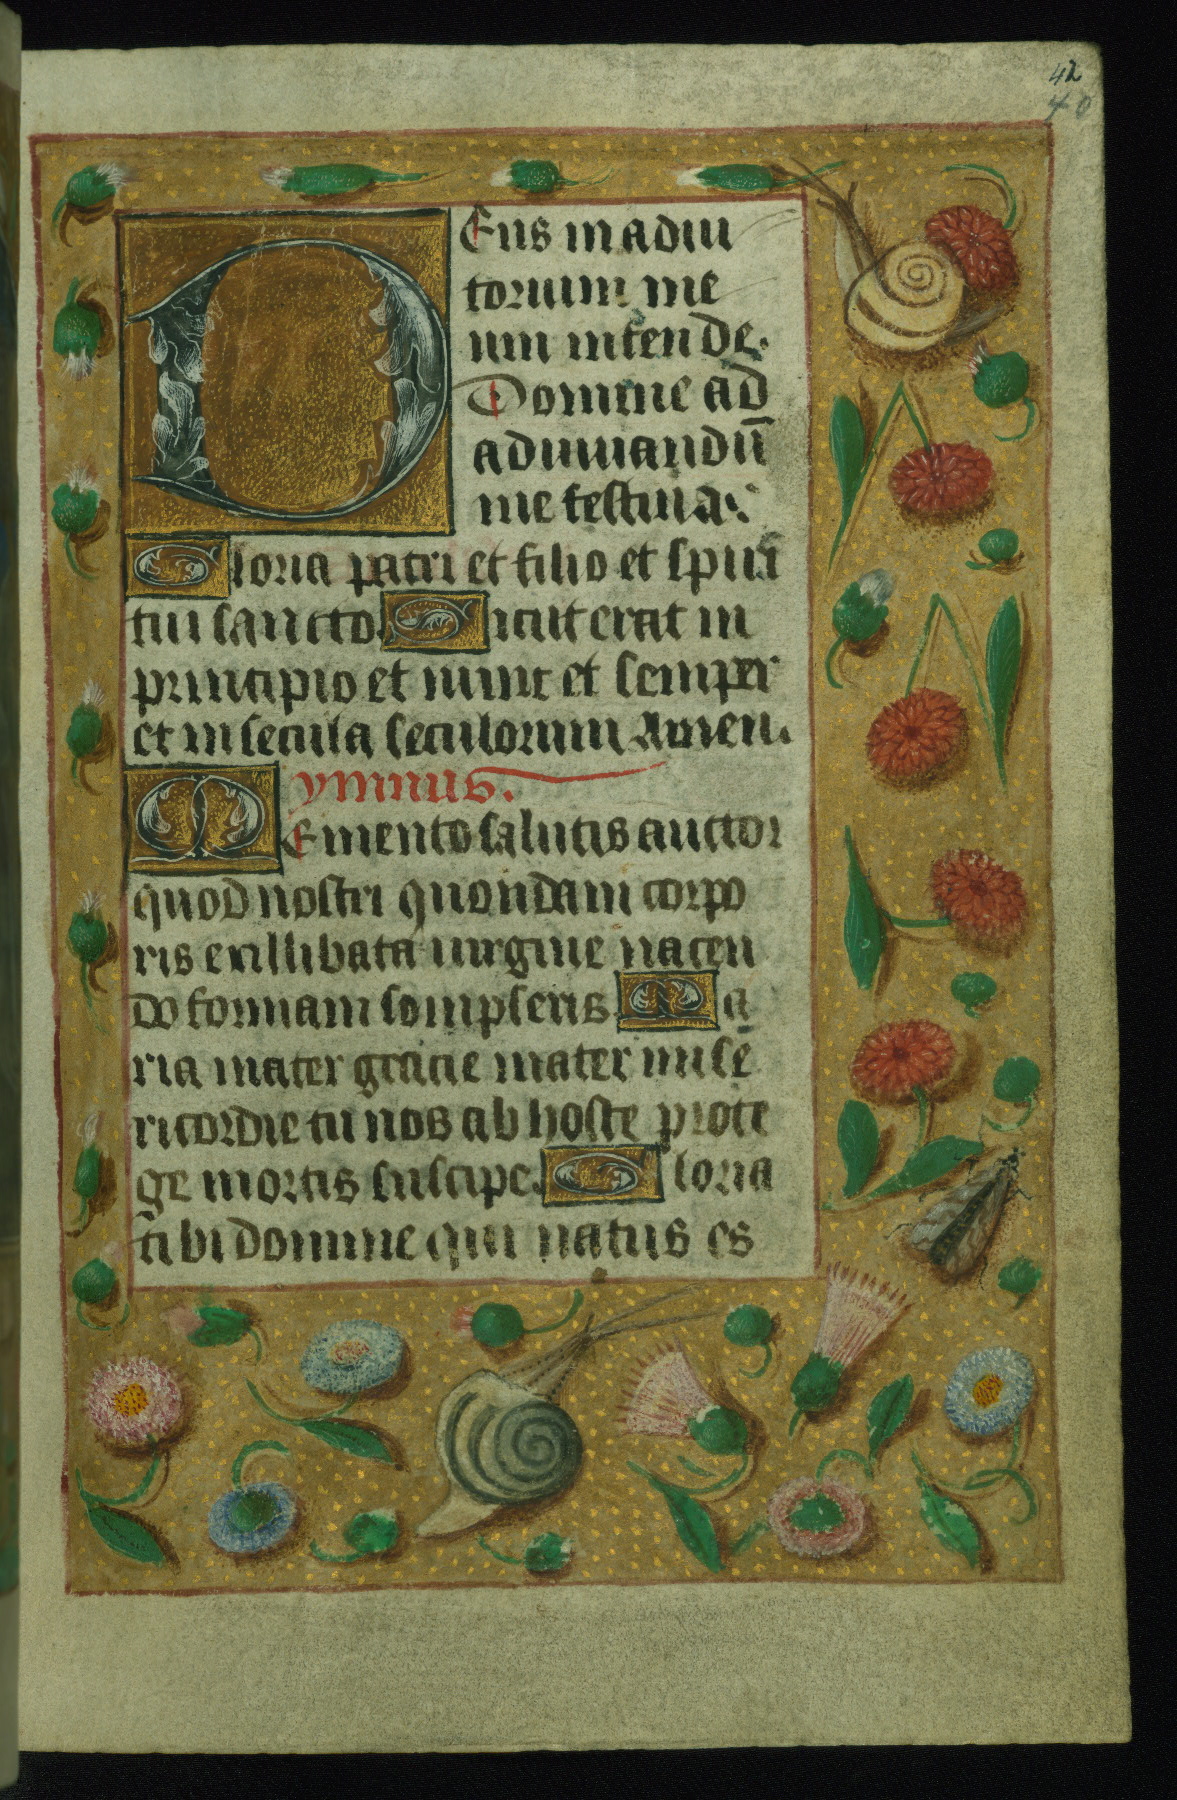 42
40
Deus in adiu
torium me
um intende.
Domine ad
adiuuandū
me festina.
Gloria patri et filio et spiri
tui sancto Sicut erat in
principio et nunc et semper
et in secula seculorum Amen.
ymnus.
Memento salutis auctor
quod nostri quondam corpo
ris ex illibata uirgine nascen
do formam sompseris Ma
ria mater gracie mater mise
ricordie tu nos ab hoste prote
ge mortis suscipe. Gloria
tibi domine qui natus es